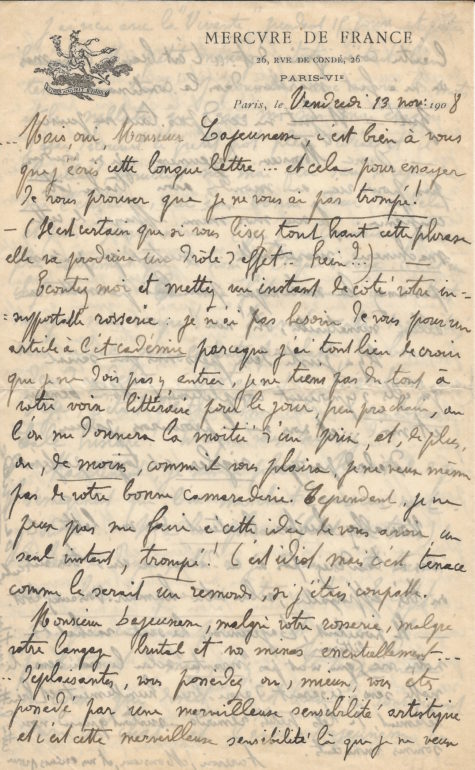 MERCVRE DE FRANCE
26, RVE DE CONDÉ, 26
PARIS-VIᵉ
Paris, le Vendredi 13 nov: 1908
... Mais oui, Monsieur Lajeunesse, c'est bien à vous
que j'écris cette longue lettre ... et cela pour essayer
de vous prouver que je ne vous ai pas trompé!
- (Il est certain que si vous lisez tout haut cette phrase
elle va produire un drôle d'effet.. hein?..) —
Ecoutez moi et mettez un instant de côté votre in-
=supportable rosserie: je n'ai pas besoin de vous pour un
article à parceque j'ai tout lieu de croire
que je ne dois pas y entrer, je ne tiens pas du tout à
votre voix littéraire pour le jour, peu prochain, où
l'on me donnera la moitié d'un prix, et, de plus,
ou, de moins, comme il vous plaira, je ne veux même
pas de votre bonne camaraderie. Cependant, je ne
peux pas me faire à cette idée de vous avoir, un
seul instant, trompé! C'est idiot mais c'est tenace
comme le serait un remords, si j'étais coupable.
Monsieur Lajeunesse, malgré votre rosserie, malgré
votre langage brutal et vos mines essentiellement ...
.. déplaisantes, vous possédez ou, mieux, vous êtes
possédé par une merveilleuse sensibilité artistique
et c'est cette merveilleuse sensibilité là que je ne veux